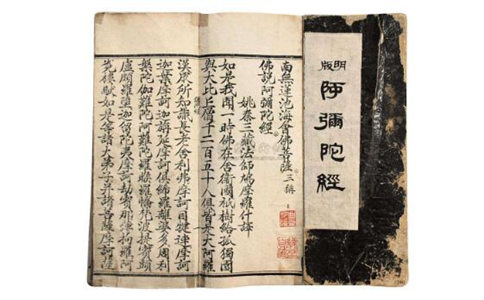 明版
阿彌陀經
南無蓮池海會佛菩薩三稱
佛說阿彌陀經
姚秦三藏法師鳩摩羅什譯
如是我聞一時佛在舍衛國祇樹給孤獨園
與大比丘僧千二百五十人俱皆是大阿羅
漢衆所知識長老舍利弗摩訶目犍連摩訶
迦葉摩訶迦旃延摩訶俱絺羅離婆多周利
槃陀伽難陀阿難陀羅睺羅憍梵波提賓頭
盧頗羅墮迦留陀夷摩訶劫賓那薄拘羅阿
樓馱如是等諸大弟子并諸菩薩摩訶薩